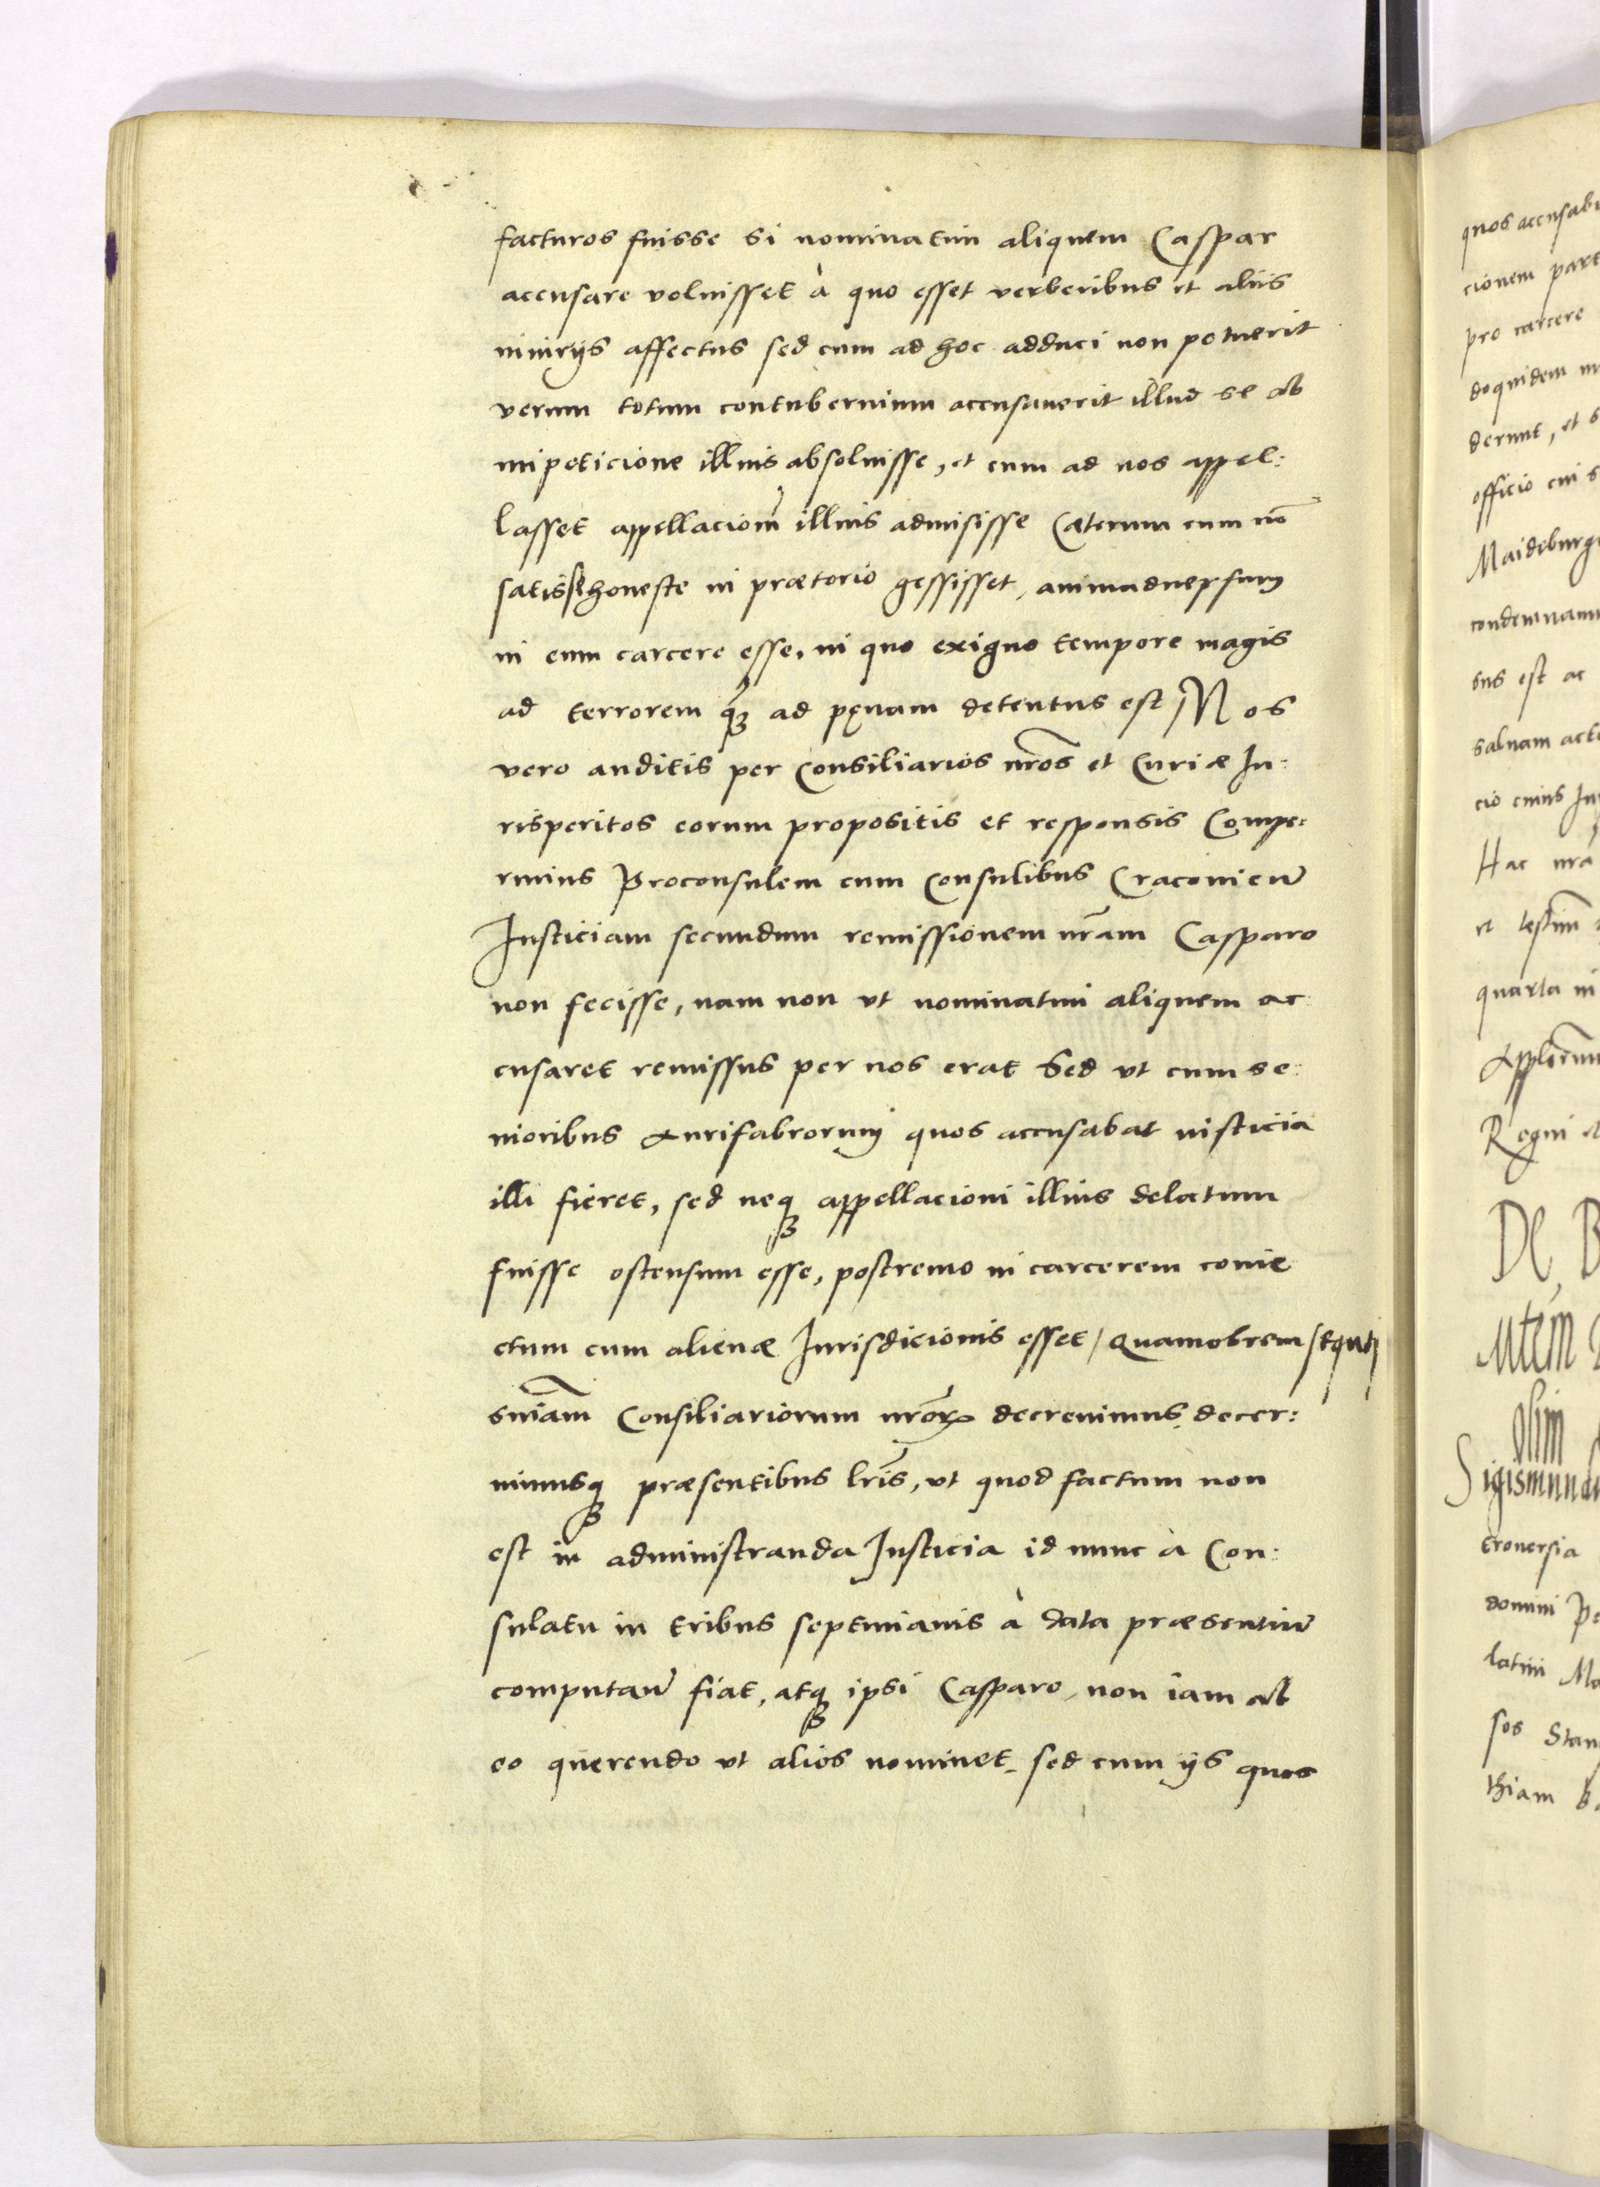 facturos fuisse si nominatim aliquem Caspar
accusare voluisset à quo esset verberibus et aliis
iniuryis affectus sed cum ad hoc adduci non potuerit
verum totum contubernium accusauerit illud se ab
impeticione illius absoluisse, et cum ad nos appel:
lasset appellacionẽ illius admisisse Cæterum cum nõ
satis se honeste in prætorio gessisset, animaduersum
in eum carcere esse, in quo exiguo tempore magis
ad terrorem q̃ȝ ad pęnam detentus est Nos
vero auditis per Consiliarios nr̃os et Curiæ Iu:
risperitos eorum propositis et responsis Compe:
rimus Proconsulem cum Consulibus Cracouień
Iusticiam secundum remissionem nr̃am Casparo
non fecisse, nam non vt nominatim aliquem ac
cusaret remissus per nos erat Sed vt cum se:
nioribus Aurifabrorum quos accusabat iusticia
illi fieret, sed neqȝ appellacioni illius delatum
fuisse ostensum esse, postremo in carcerem conie
ctum cum alienæ Iurisdicionis esset / Quamobrem sequti
sniãm Consiliariorum nr̃orꝝ decreuimus decer:
nimusqȝ præsentibus lr̃is, vt quod factum non
est in administranda Iusticia id nunc à Con:
sulatu in tribus septimanis à data præsentiuḿ
computań fiat, atqȝ ipsi Casparo, non iam ab
eo querendo vt alios nominet, sed cum ijs quos
quos accusab
cionem part
pro carcere
doquidem
derunt, et s
officio cui s
Maideburg
condemnam
sus est ac
saluam act
cio cuius Iu
Hac nr̃a
et testim
quarta in
Regni
De B
olim
Sigismund
trouersia
domini Pe
latini Ma
sos Stan
thiam